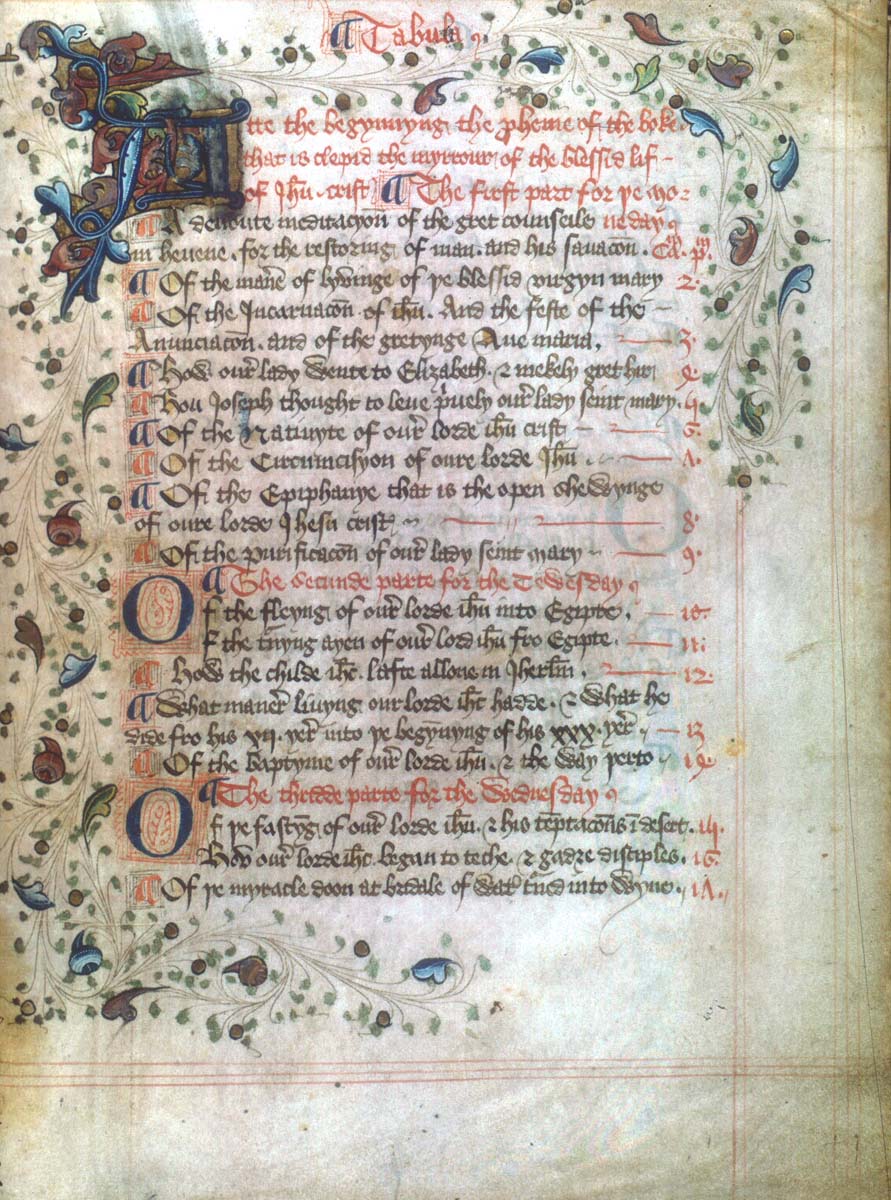 ¶ Tabula
Atte the begynnyng the pheme of the boke
that is clepid the myrrour of the blessid lif
of Jhu crist ¶ The first part for þe mo
¶ A deuoute meditacyon of the gret counseile neday
in heuene. for the restoring of man. and his sauacon. Ca. pm
¶ Of the manere of lyvinge of þe blessid virgyn mary 2.
¶ Of the Incarnacon of ihu. And the feste of the
Anunciacon. and of the gretynge Aue maria. 3.
¶ How our lady wente to Elizabeth. & mekely gret hir 4
¶ Hou Joseph thought to leue priuely our lady seint mary. 5
¶ Of the Natiuyte of our lorde ihu crist 6.
¶ Of the Circumcisyon of oure lorde Jhu 7.
¶ Of the Epiphanye that is the open shewynge
of oure lorde Jhesu crist 8.
¶ Of the purificacon of our lady seint mary 9.
¶ The secunde parte for the Tewesday
Of the fleyng of our lorde ihu into Egipte. 10.
Of the tnyng ayen of our lord ihu fro Egipte. 11.
¶ How the childe ihc. lafte allone in Jherlm. 12.
¶ What maner liuyng our lorde ihc hadde. & what he
dide fro his xii. yer into þe begynyng of his xxx. yer. 13
¶ Of the baptyme of our lorde ihu. & the way þerto 14
¶ The thridde parte for the Wednesday
Of þe fastyg of our lorde ihu. & his temptacons i desert. 15.
How our lorde ihc began to teche & gadre disciples. 16.
¶ Of þe myracle doon at bridale of wat tned into wyne. 17.